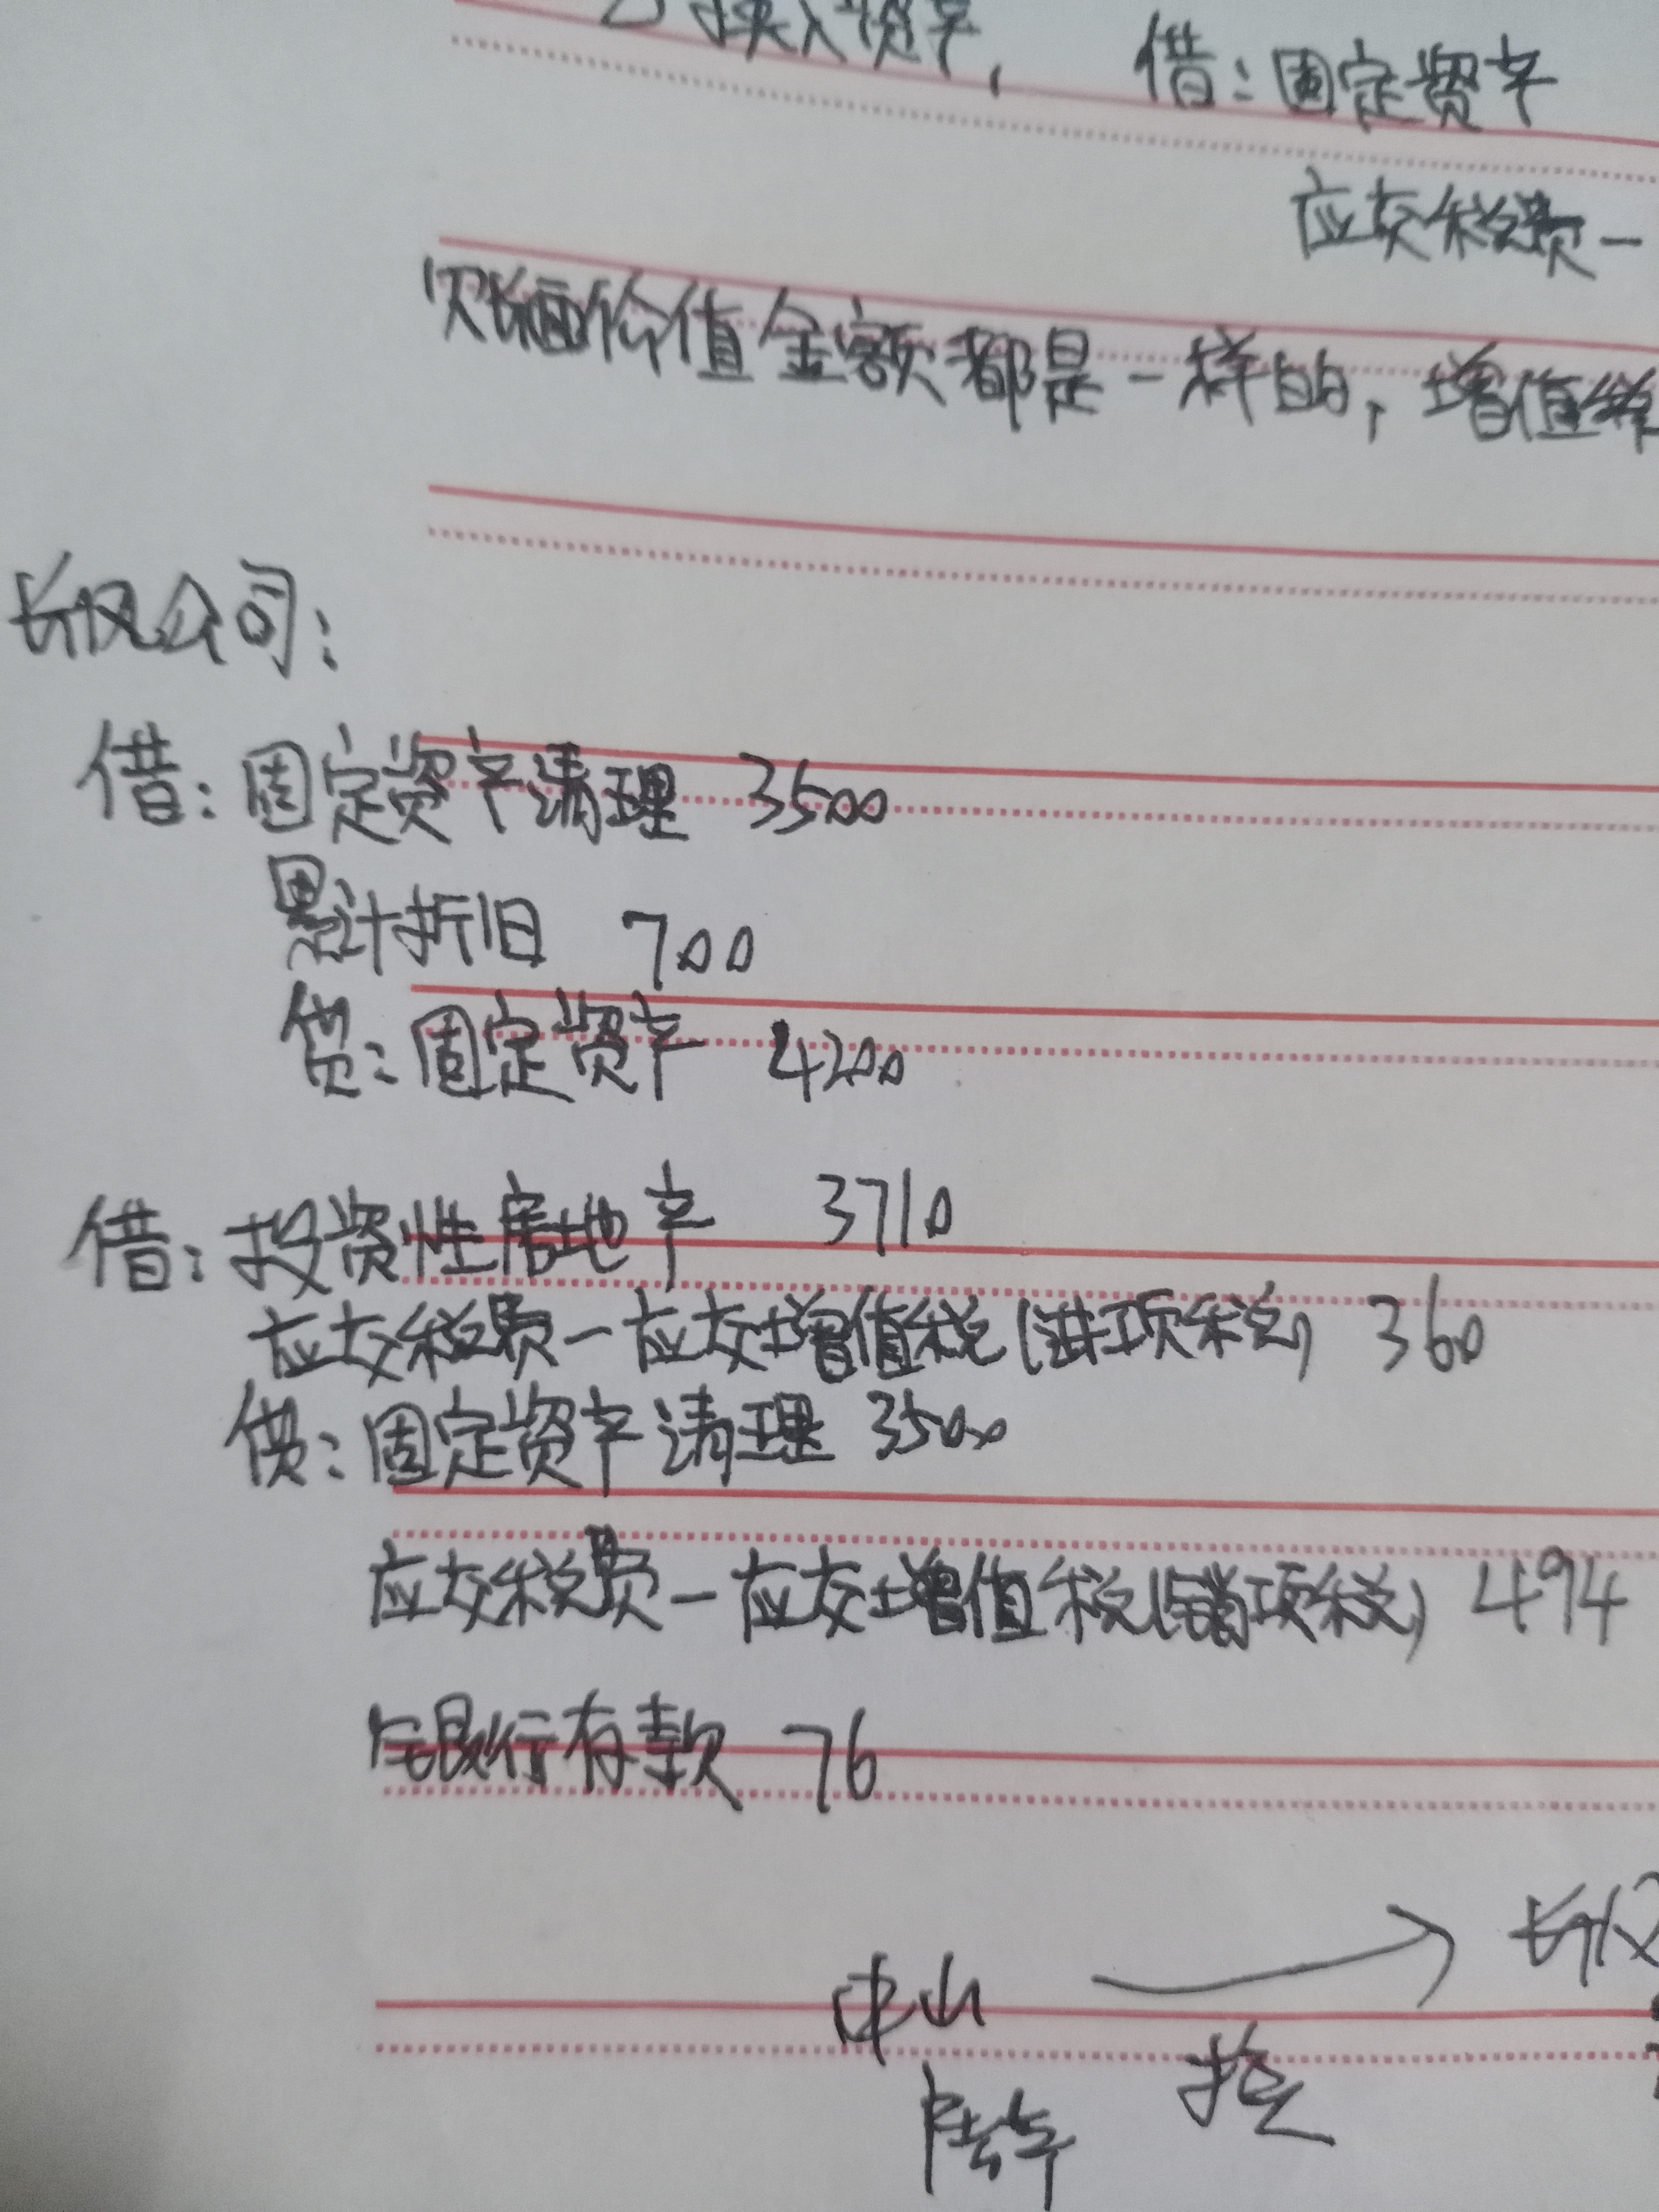 换入资产, 借:固定资产
应交税费一
以账面价值金额都是一样的,增值税
长风公司:
借:固定资产清理 3500
累计折旧 700
贷:固定资产 4200
借:投资性房地产 3710
应交税费一应交增值税(进项税) 360
贷:固定资产清理 3500
应交税费一应交增值税(销项税) 494
银行存款 76
中山 → 长风
换